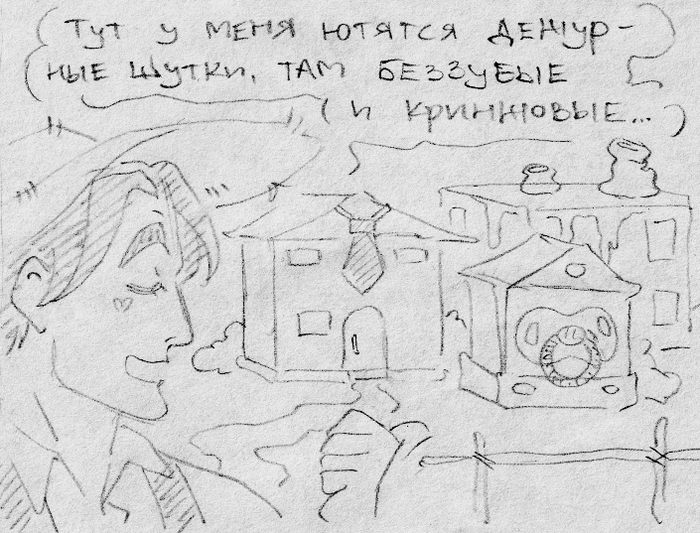 Тут у меня ютятся дежур-
ные шутки, там беззубые
(и кринжовые...)